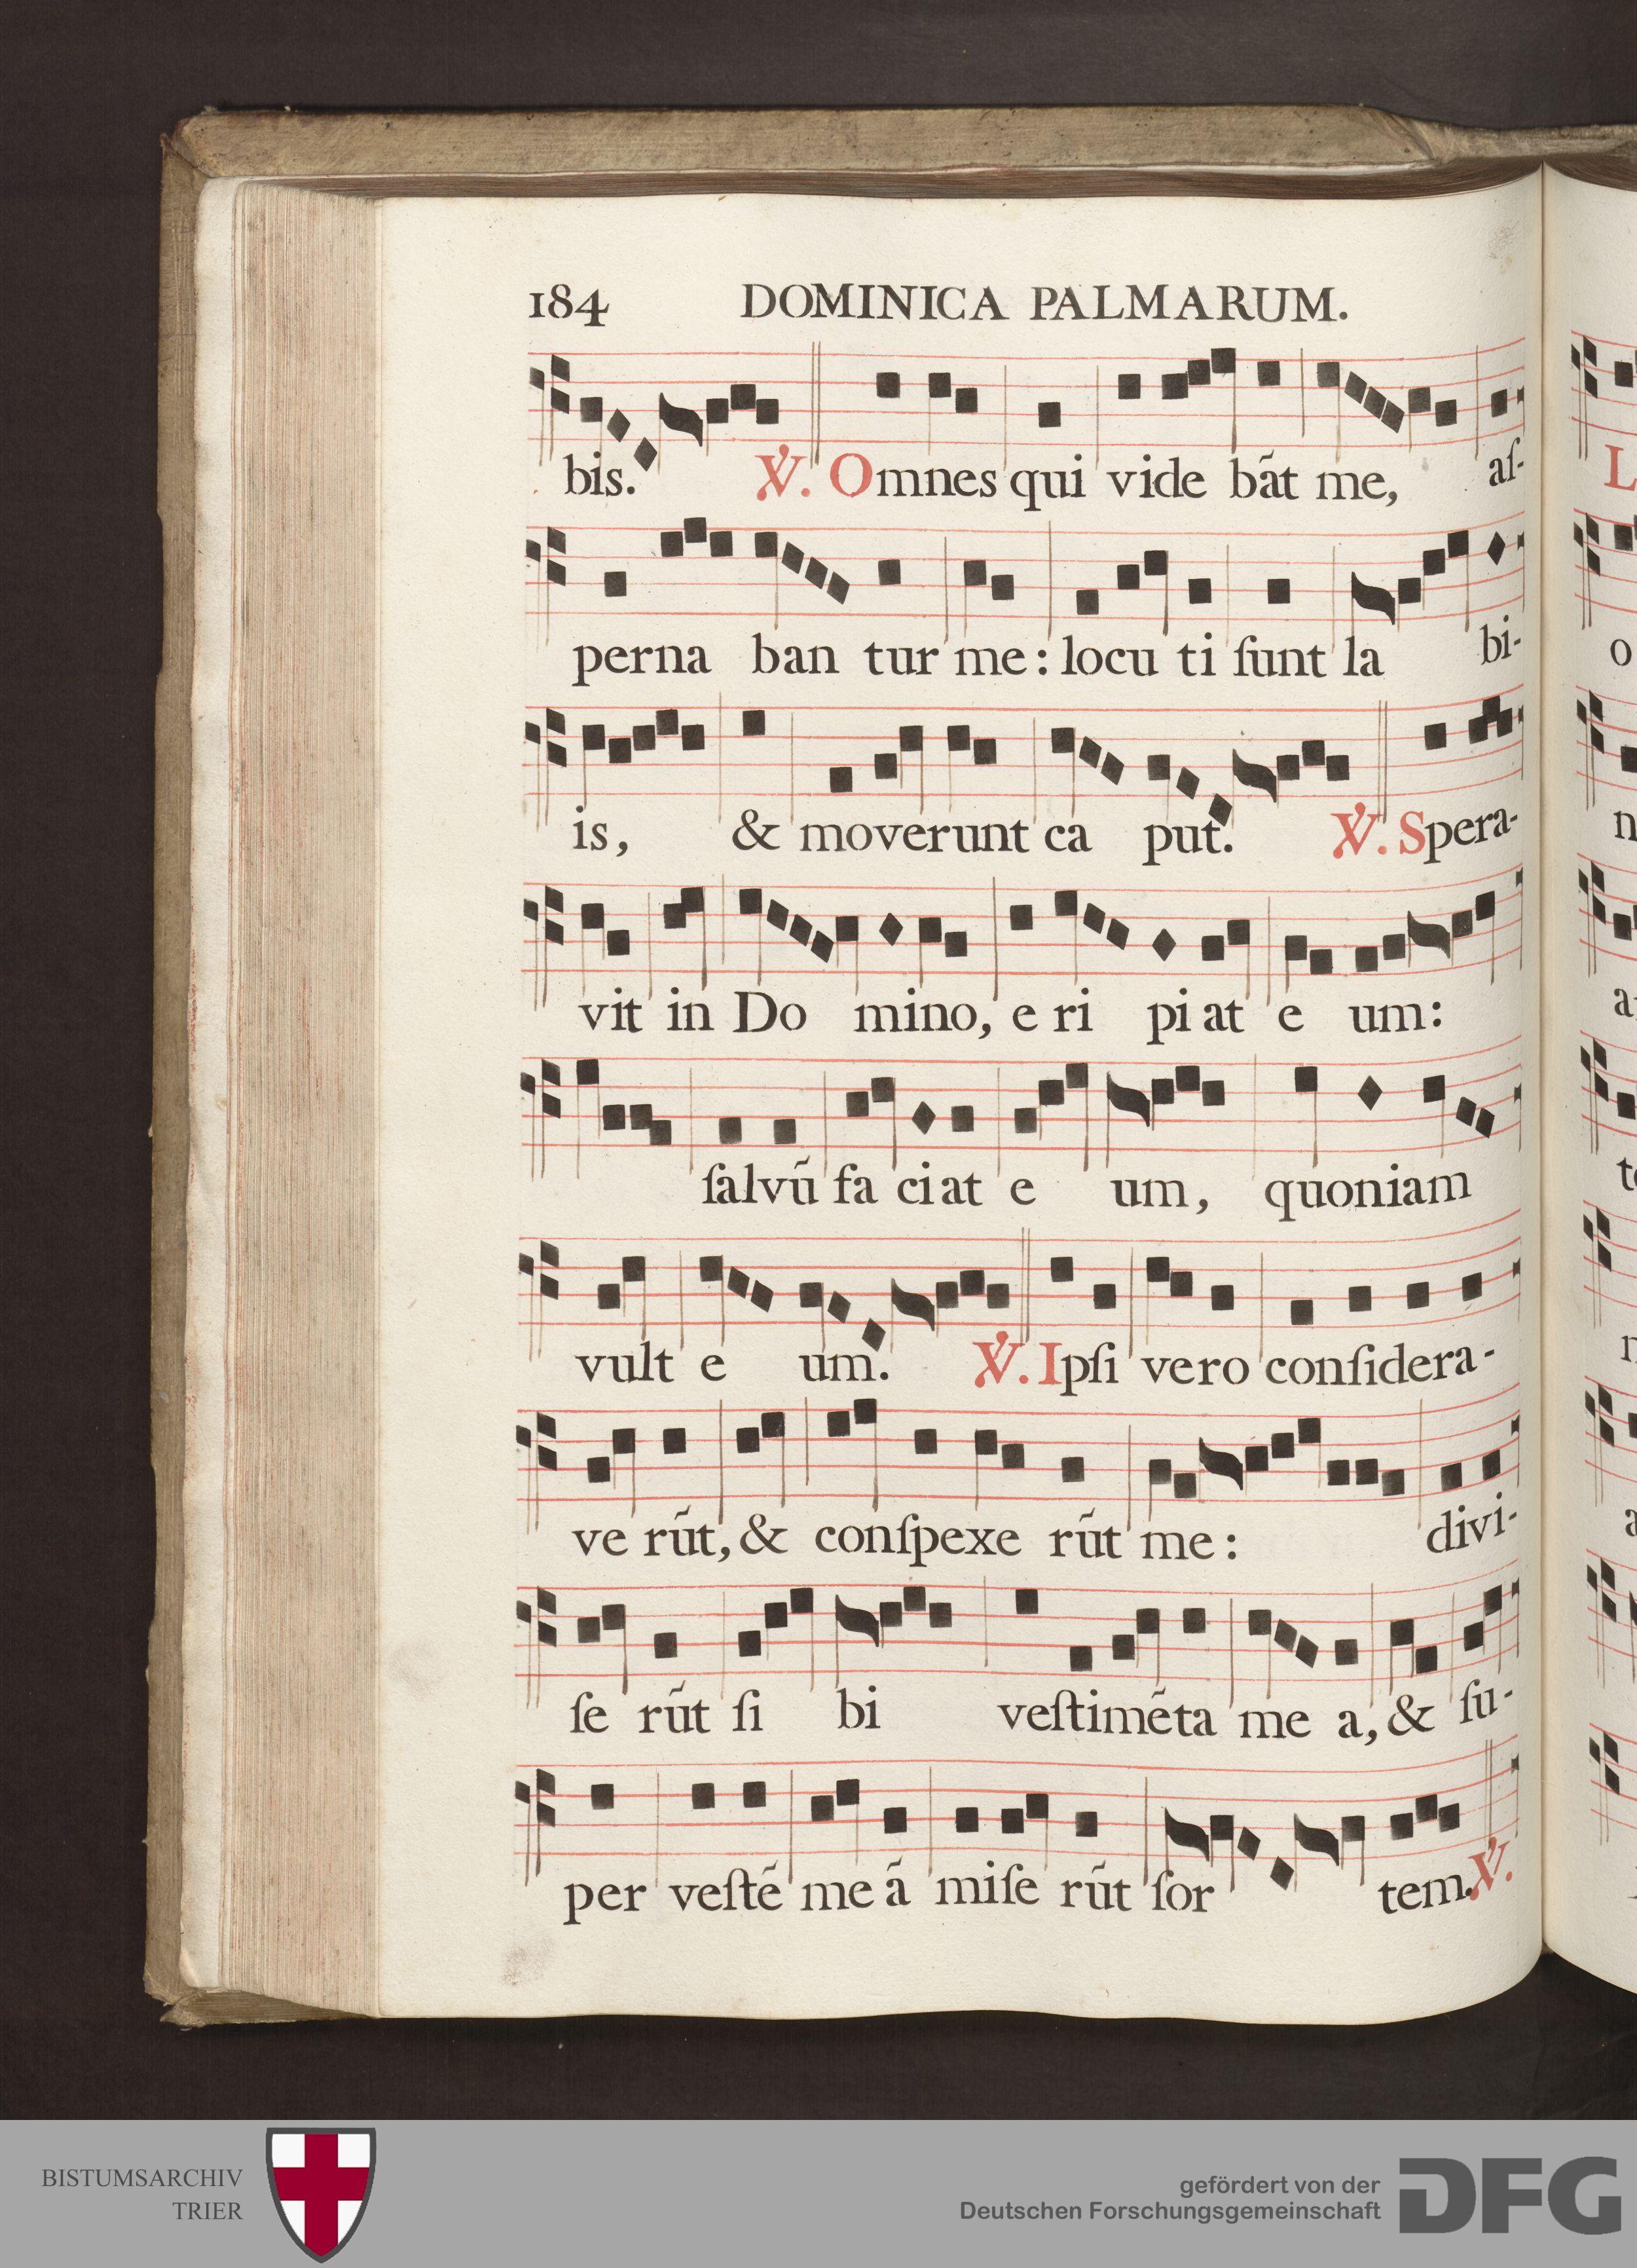 184 DOMINICA PALMARUM.
bis. ℣. Omnes qui vide bãt me, aſ-
perna ban tur me: locu ti ſunt la bi-
is, & moverunt ca put. ℣. Spera-
vit in Do mino, e ri pi at e um:
ſalvũ fa ci at e um, quoniam
vult e um. ℣. Ipſi vero conſidera-
ve rũt, & conſpexe rũt me: divi-
ſe rũt ſi bi veſtimẽta me a, & ſu-
per veſtẽ me ã miſe rũt ſor tem. ℣.
L
o
n
BISTUMSARCHIV
TRIER
gefördert von der
Deutschen Forschungsgemeinschaft
DFG